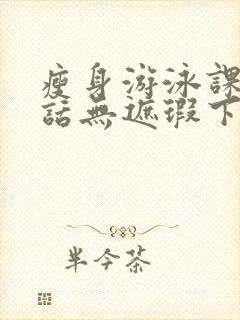 瘦身游泳課
話無遮瑕下
半今茶